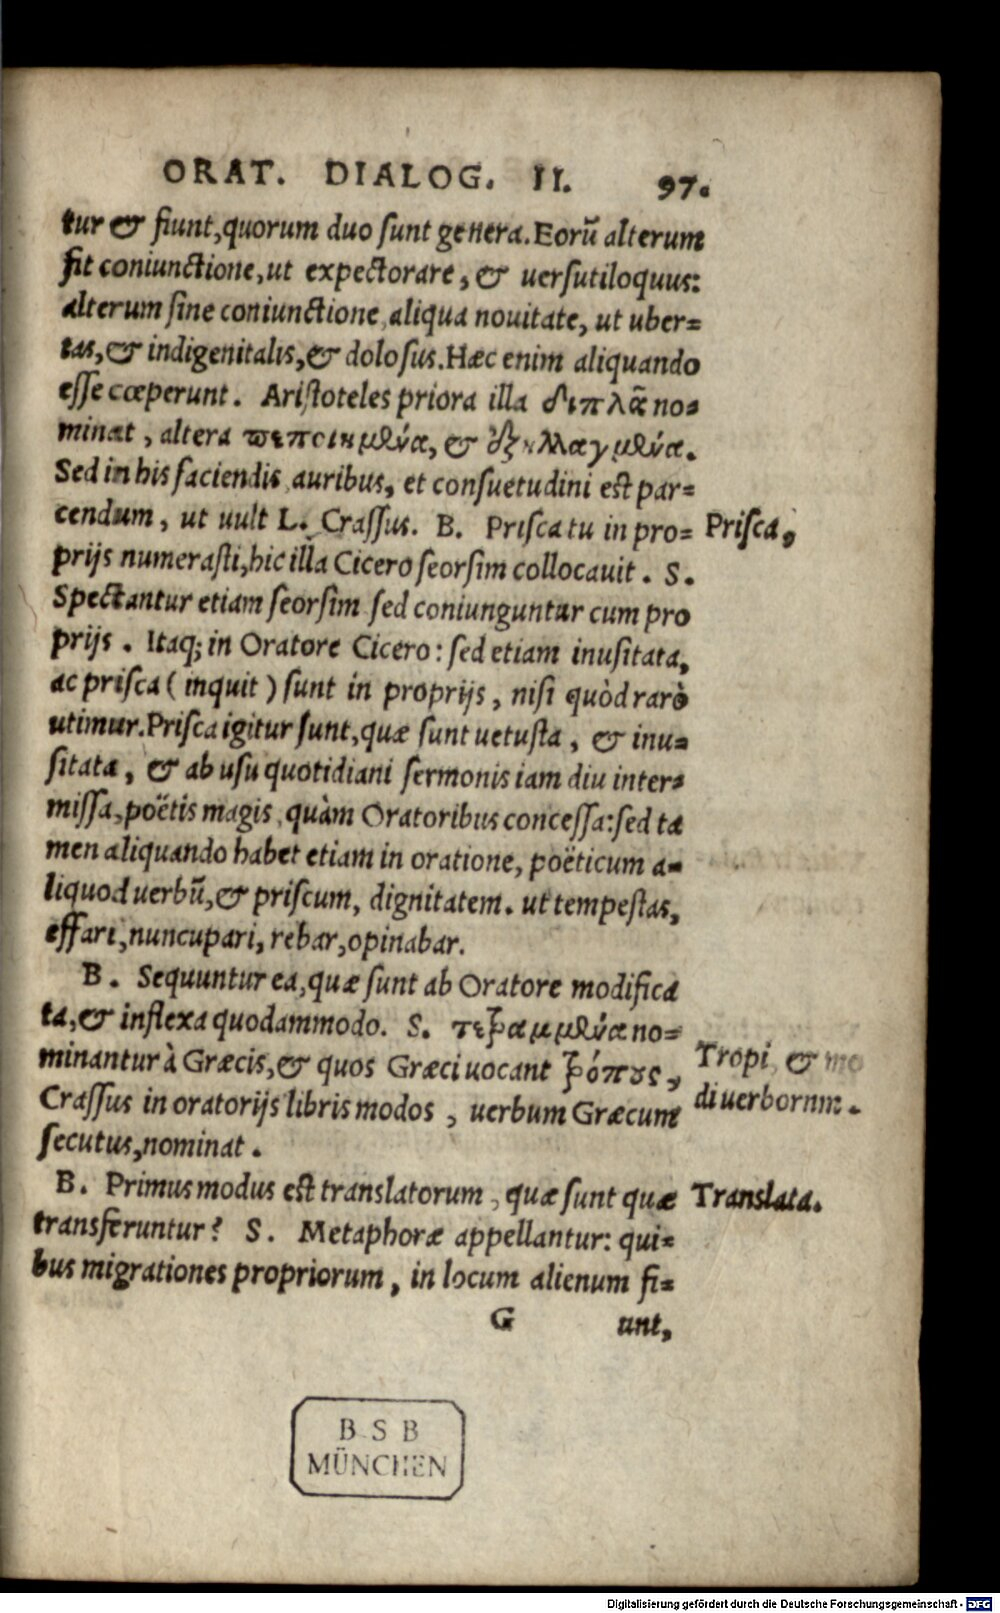 ORAT. DIALOG. II. 97.
tur & fiunt, quorum duo sunt genera. Eorũ alterum
fit coniunctione, ut expectorare, & uersutiloquus:
alterum sine coniunctione, aliqua nouitate, ut uber=
tas, & indigenitalis, & dolosus. Hæc enim aliquando
esse cœperunt. Aristoteles priora illa διπλᾶ no=
minat, altera πεποιημένα, & ἐξηλλαγμένα.
Sed in his faciendis auribus, et consuetudini est par=
cendum, ut uult L. Crassus. B. Prisca tu in pro=
Prisca,
prijs numerasti, hic illa Cicero seorsim collocauit. S.
Spectantur etiam seorsim sed coniunguntur cum pro
prijs. Itaq; in Oratore Cicero: sed etiam inusitata,
ac prisca (inquit) sunt in proprijs, nisi quòd rarò
utimur. Prisca igitur sunt, quæ sunt uetusta, & inu=
sitata, & ab usu quotidiani sermonis iam diu inter=
missa, poëtis magis, quàm Oratoribus concessa: sed ta
men aliquando habet etiam in oratione, poëticum a=
liquod verbũ, & priscum, dignitatem. ut tempestas,
effari, nuncupari, rebar, opinabar.
B. Sequuntur ea, quæ sunt ab Oratore modifica
ta, & inflexa quodammodo. S. τετραμμένα no=
minantur à Græcis, & quos Græci uocant τρόπους,
Tropi, & mo
Crassus in oratorijs libris modos, uerbum Græcum
di uerborum.
secutus, nominat.
B. Primus modus est translatorum, quæ sunt quæ
Translata.
transferuntur? S. Metaphoræ appellantur: qui=
bus migrationes propriorum, in locum alienum fi=
G unt,
B S B
MÜNCHEN
Digitalisierung gefördert durch die Deutsche Forschungsgemeinschaft - DFG